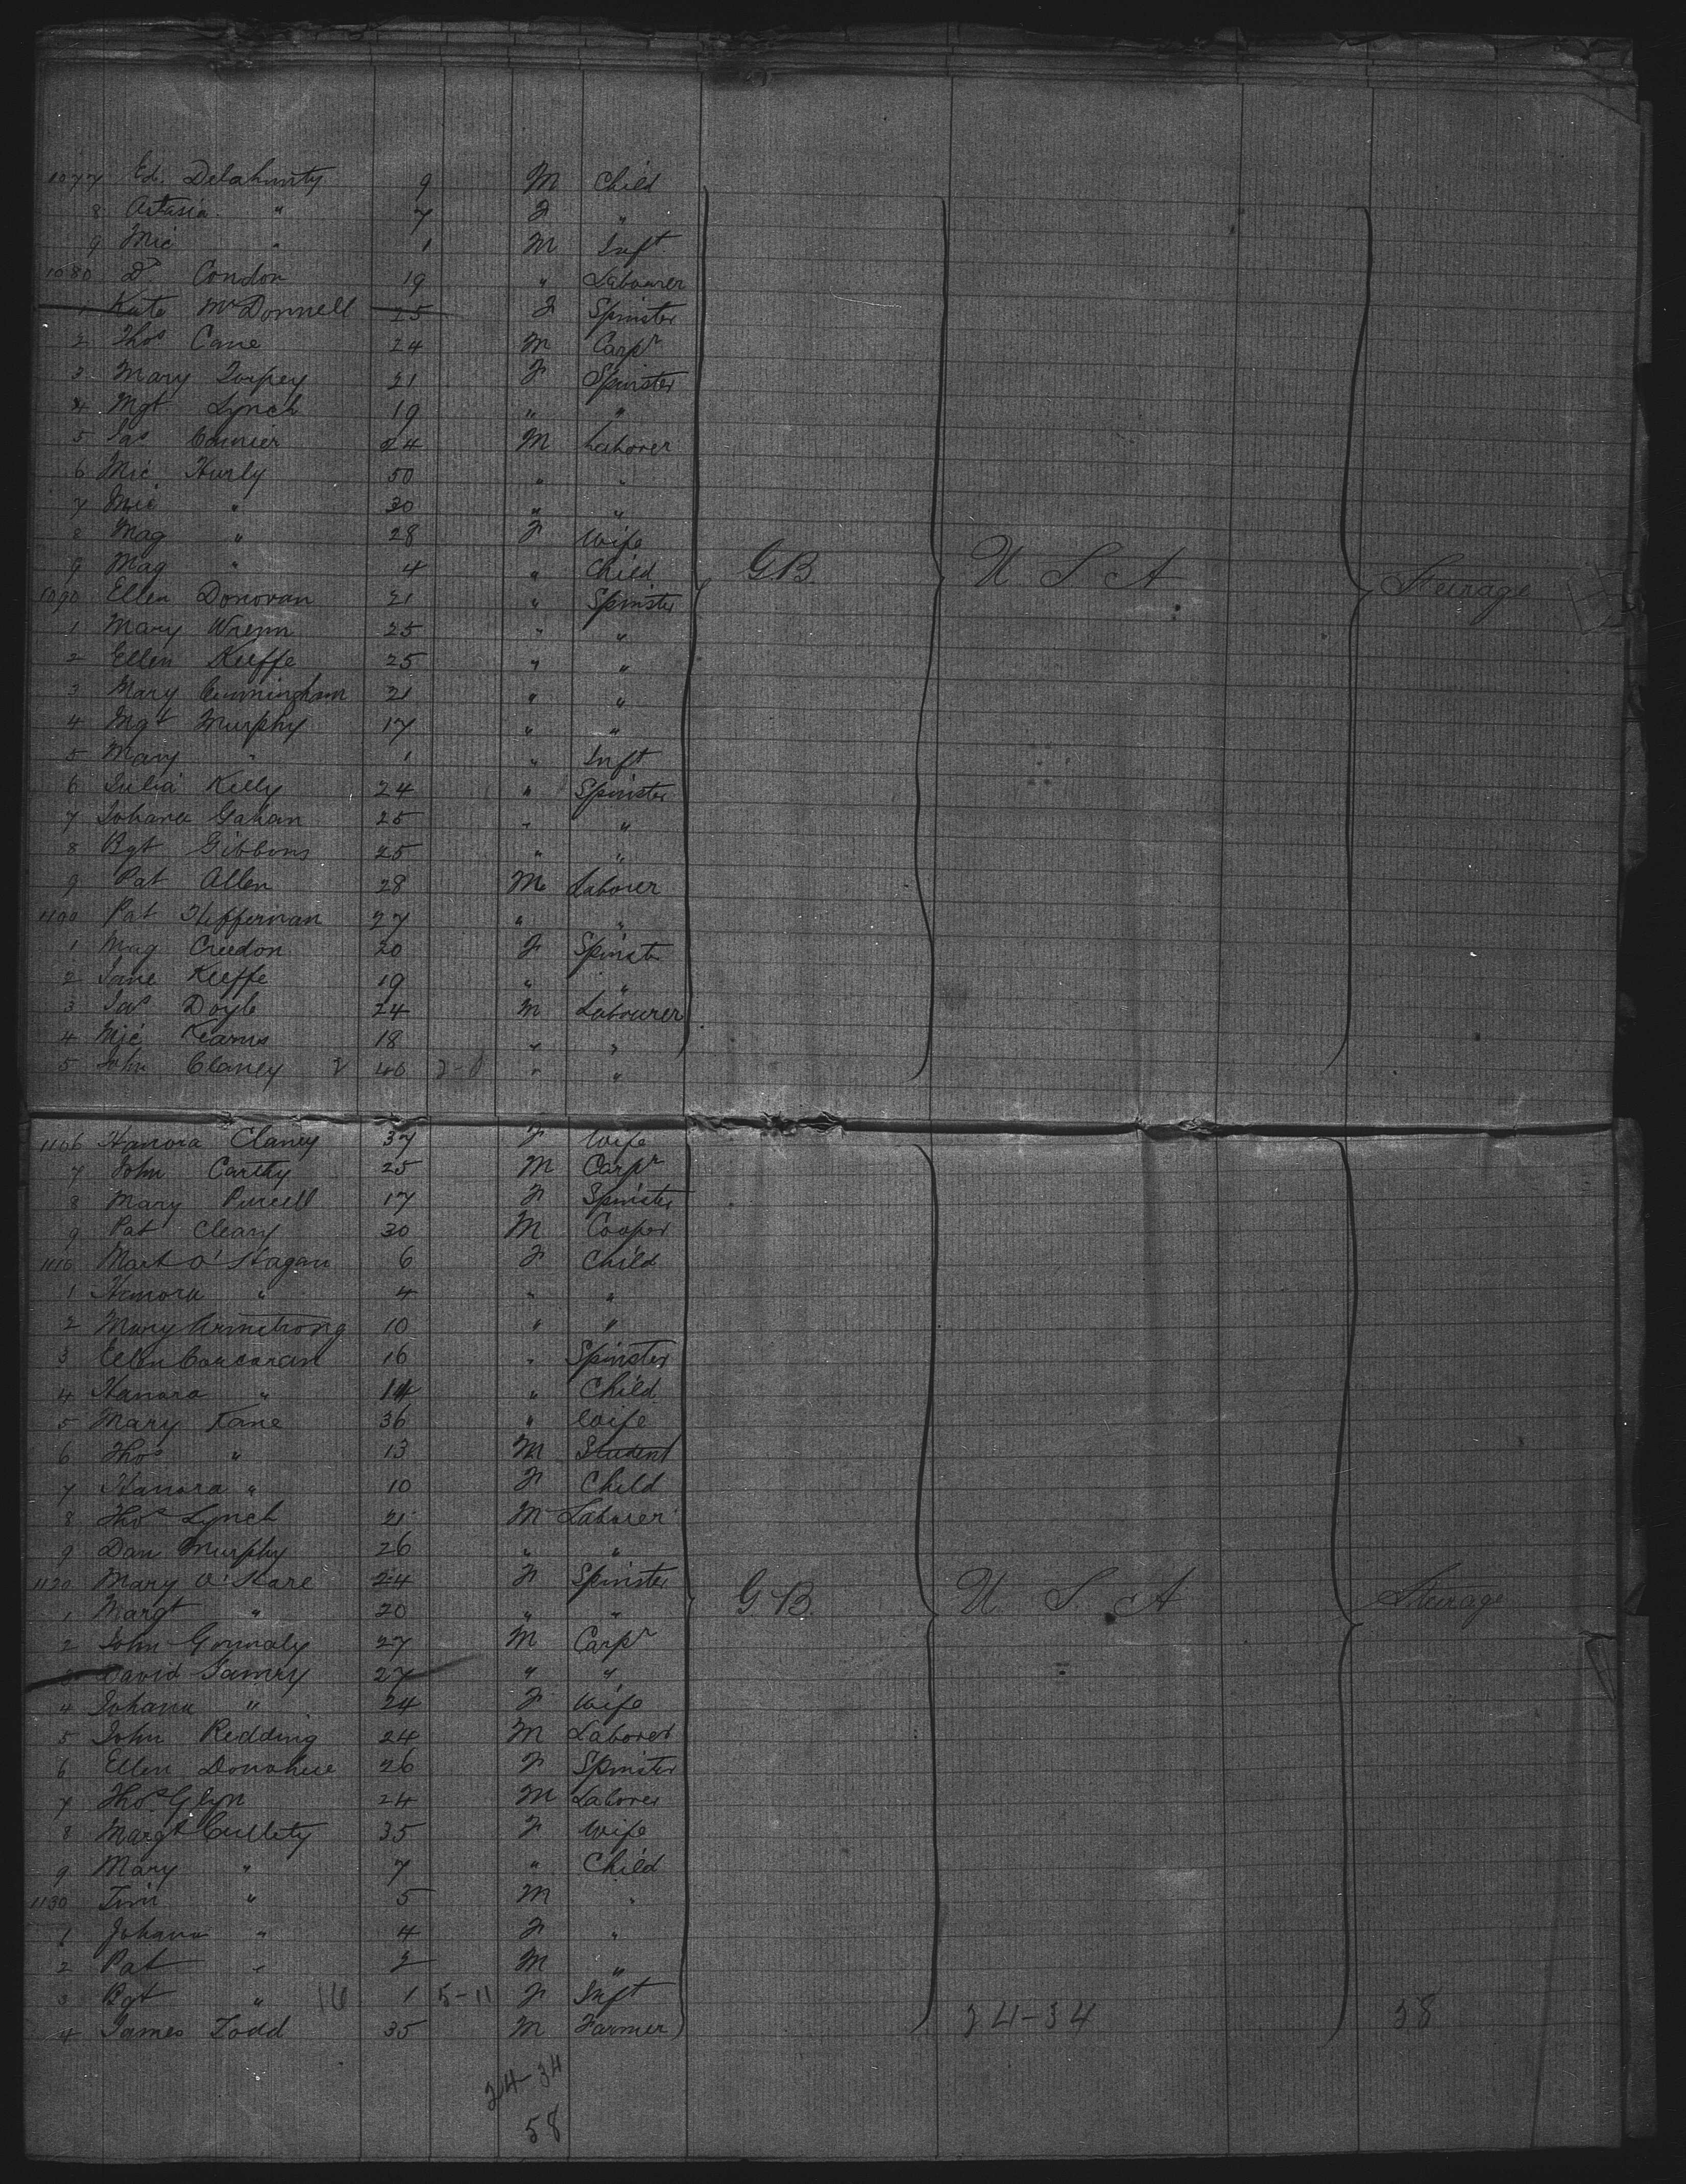 1077 Ed. Delahunty 9 M Child
8 Astasia " 7 F "
9 Mic " 1 M Inft
1080 Dd Condon 19 " Labourer
1 Kate McDonnell 25 F Spinster
2 Thos Cane 24 M Carpr
3 Mary Torpey 21 F Spinster
4 Mgt Lynch 19 " "
5 Jas 24 M Laborer
6 Mic Hurly 50 " "
7 Mic " 30 " "
8 Mag " 28 F Wife
9 Mag " 4 " Child GB U S A Steerage
1090 Ellen Donovan 21 " Spinster
1 Mary Wrenn 25 " "
2 Ellen Keeffe 25 " "
3 Mary Cunningham 21 " "
4 Mgt Murphy 17 " "
5 Mary " 1 " Inft
6 Julia Kelly 24 " Spinster
7 Johana Gahan 25 " "
8 Bgt Gibbons 25 " "
9 Pat Allen 28 M Labourer
1100 Pat Heffernan 27 " "
1 Mag Creedon 20 F Spinster
2 Jane Keeffe 19 " "
3 Jas Doyle 24 M Labourer
4 Mic Kearns 18 " "
5 John Clancy 2 40 2-0 " "
1106 Hanora Clancy 37 F Wife
7 John Carthy 25 M Carpr
8 Mary Purcell 17 F Spinster
9 Pat Cleary 30 M Cooper
1110 Mart O'Hagan 6 F Child
1 Hanora " 4 " "
2 Mary Armstrong 10 " "
3 Ellen Corcoran 16 " Spinster
4 Hanora " 14 " Child
5 Mary Kane 36 " Wife
6 Thos " 13 M Student
7 Hanora " 10 F Child
8 Thos Lynch 21 M Laborer
9 Dan Murphy 26 " "
1120 Mary O'Hare 24 F Spinster
1 Margt " 20 " " GB U S A Steerage
2 John Gormaly 27 M Carpr
3 David 27 " "
4 Johana " 24 F Wife
5 John Redding 24 M Laborer
6 Ellen Donahue 26 F Spinster
7 Thos Glyn 24 M Laborer
8 Margt Cullity 35 F Wife
9 Mary " 7 " Child
1130 Tim " 5 M "
1 Johana " 4 F "
2 Pat " 2 M "
3 Bgt " 16 1 5-11 F Inft
4 James Todd 35 M Farmer 24-34 58
24-34
58